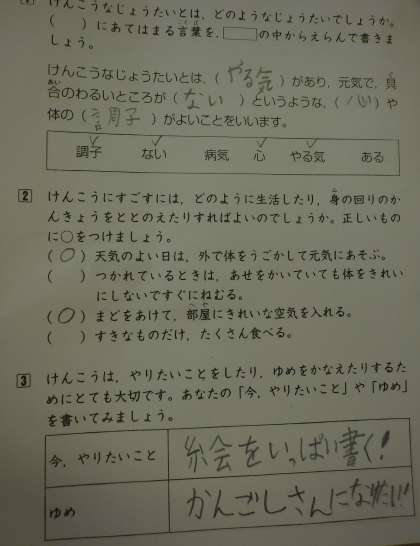 けんこうなじょうたいとは、どのようなじょうたいでしょうか。
(　　)にあてはまる言葉を、　　の中からえらんで書きま
しょう。
けんこうなじょうたいとは、(やる気)があり、元気で、具
合のわるいところが(ない)というような、(心)や
体の(調子)がよいことをいいます。
調子　ない　病気　心　やる気　ある
2 けんこうにすごすには、どのように生活したり、身の回りのか
んきょうをととのえたりすればよいのでしょうか。正しいもの
に○をつけましょう。
(○)天気のよい日は、外で体をうごかして元気にあそぶ。
(　　)つかれているときは、あせをかいていても体をきれい
にしないですぐにねむる。
(○)まどをあけて、部屋にきれいな空気を入れる。
(　　)すきなものだけ、たくさん食べる。
3 けんこうは、やりたいことをしたり、ゆめをかなえたりするた
めにとても大切です。あなたの「今、やりたいこと」や「ゆめ」
を書いてみましょう。
今、やりたいこと　糸会をいっぱい書く!
ゆめ　かんごしさんになりたい!!